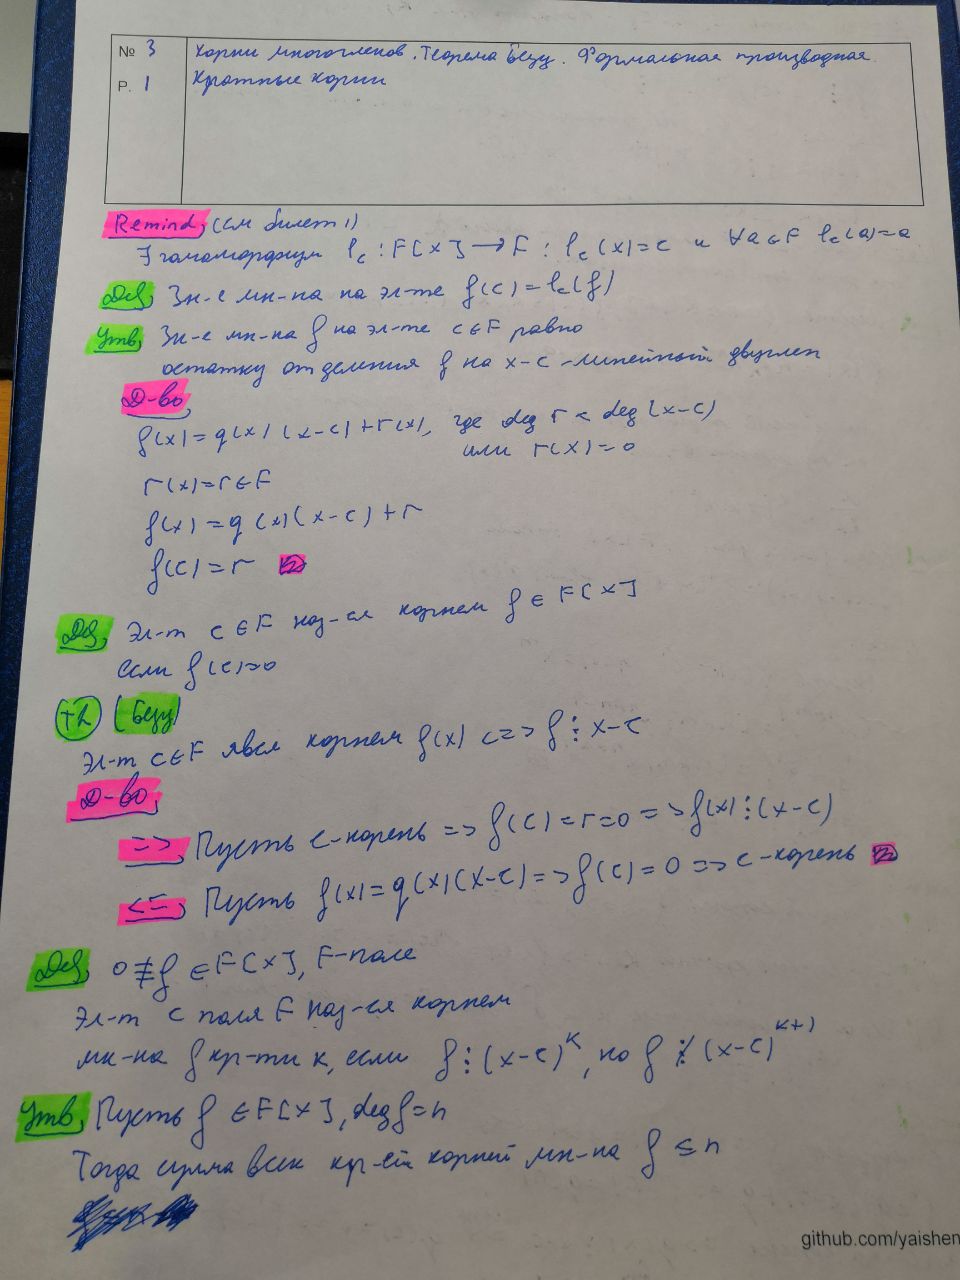 № 3
Корни многочленов. Теорема Безу. Формальная производная.
Р. 1
Кратные корни
Remind, (см билет 1)
∃ гомоморфизм lc : F[x] → F : lc(x)=c и ∀a∈F lc(a)=a
Def, Зн-е мн-на на эл-те f(c)=lc(f)
Утв, Зн-е мн-на f на эл-те c∈F равно
остатку от деления f на x-c - линейный двучлен
Д-во
f(x)=q(x)(x-c)+r(x), где deg r < deg(x-c)
или r(x)=0
r(x)=r∈F
f(x)=q(x)(x-c)+r
f(c)=r
Def, Эл-т c∈F наз-ся корнем f∈F[x]
если f(c)=0
Th (Безу)
Эл-т c∈F явл корнем f(x) <=> f⋮x-c
Д-во,
=>, Пусть c-корень => f(c)=r=0 => f(x)⋮(x-c)
<=, Пусть f(x)=q(x)(x-c) => f(c)=0 => c-корень
Def, 0≢f∈F[x], F-поле
Эл-т c поля F наз-ся корнем
мн-на f кр-ти k, если f⋮(x-c)^k, но f⋮̸(x-c)^{k+1}
Утв, Пусть f∈F[x], deg f=n
Тогда сумма всех кр-ей корней мн-на f ≤n
github.com/yaishen